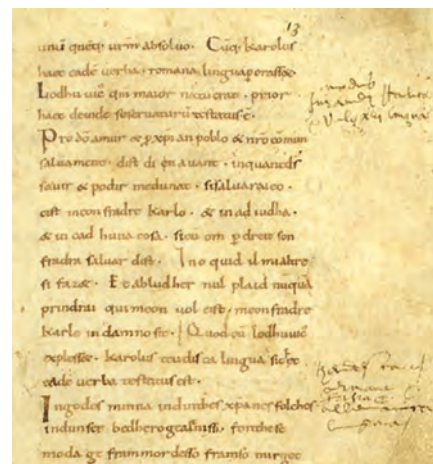 13
unũ quẽq; ur̃m absoluo. Cũq; karolus
haec eadẽ uerba. romana lingua ꝑorasset.
Lodhuuuic̃ qm̃ maior natu erat. prior
haec deinde se seruaturũ testatus ẽ.
Pro dõ amur & ꝑ xp̃ian poblo & nr̃o cõmun
saluament. dist di en auant. inquantds̃
sauir & podir medunat. sisaluaraieo.
cist meon fradre karlo. & in ad iudha.
& in cad huna cosa. sicũ om ꝑ dreit son
fradra saluar dist. Ino quid il mialtre
si fazet. Et abludher nul plaid nũquã
prindrai qui meon uol cist. meon fradre
karle in damno sit. Quod cũ lodhuuic̃
explesset. karolus teudisca lingua sic &
eadẽ uerba testatus est.
Ingodes minna indinthes xp̃anes folches
indunser bedhero gealtnissi. fonthese
moda ge frammordesso framso mirgot